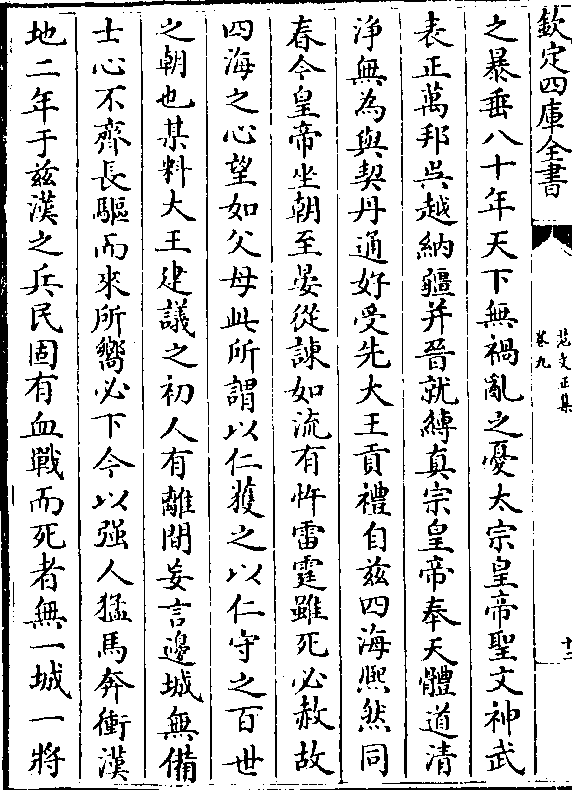 欽定四庫全書
范文正集
卷九
十二
之暴垂八十年天下無禍亂之憂太宗皇帝聖文神武
表正萬邦吳越納疆并晉就縛真宗皇帝奉天體道清
淨無為與契丹通好受先大王貢禮自兹四海熈然同
春今皇帝坐朝至晏從諫如流有忤雷霆雖死必赦故
四海之心望如父母此所謂以仁獲之以仁守之百世
之朝也某料大王建議之初人有離間妄言邊城無備
士心不齊長驅而來所嚮必下今以强人猛馬奔衝漢
地二年于兹漢之兵民固有血戰而死者無一城一將